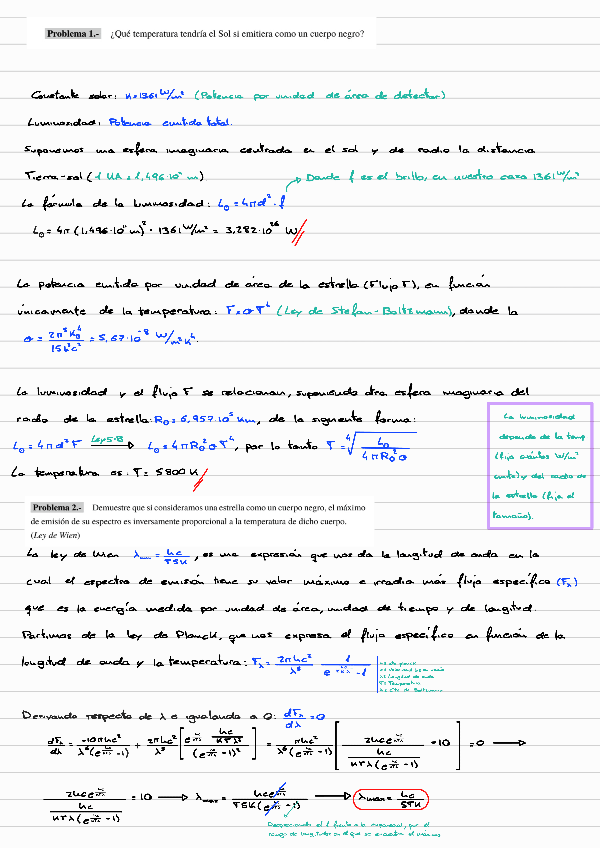 Problema 1.- ¿Qué temperatura tendría el Sol si emitiera como un cuerpo negro?
Constante solar: K=1361 W/m² (Potencia por unidad de área de detector)
Luminosidad: Potencia emitida total.
Suponemos una esfera imaginaria centrada en el sol y de radio la distancia
Tierra-sol (1 UA = 1,496·10¹¹ m)
Donde f es el brillo, en nuestro caso 1361 W/m²
La fórmula de la luminosidad: L₀ = 4πd²·f
L₀ = 4π (1,496·10¹¹ m)² · 1361 W/m² = 3,282·10²⁶ W
La potencia emitida por unidad de área de la estrella (Flujo F), en función
únicamente de la temperatura: F=σT⁴ (Ley de Stefan-Boltzmann), donde la
σ = 2π⁵K₀⁴/15h³c² = 5,67·10⁻⁸ W/m²K⁴.
La luminosidad y el flujo F se relacionan, suponiendo otra esfera imaginaria del
radio de la estrella: R₀ = 6,957·10⁵ Km, de la siguiente forma:
L₀ = 4πd²F Ley S-B → L₀ = 4πR₀²σT⁴, por lo tanto T = ⁴√(L₀/4πR₀²σ)
La temperatura es: T = 5800 K
La luminosidad
depende de la temp
(fija cuántos W/m²
emite) y del radio de
la estrella (fija el
tamaño).
Problema 2.- Demuestre que si consideramos una estrella como un cuerpo negro, el máximo
de emisión de su espectro es inversamente proporcional a la temperatura de dicho cuerpo.
(Ley de Wien)
La ley de Wien λₘₐₓ = hc/T5K, es una expresión que nos da la longitud de onda en la
cual el espectro de emisión tiene su valor máximo e irradia más flujo específico (Fλ)
que es la energía medida por unidad de área, unidad de tiempo y de longitud.
Partimos de la ley de Planck, que nos expresa el flujo específico en función de la
longitud de onda y la temperatura: Fλ = 2πhc²/λ⁵ 1/(e^(hc/KTλ) -1)
T= Temperatura
Derivando respecto de λ e igualando a 0: dFλ/dλ = 0
dFλ/dλ = -10πhc²/λ⁶(e^(hc/KTλ) -1) + 2πhc²/λ⁵ [e^(hc/KTλ) hc/KTλ² / (e^(hc/KTλ) -1)²] = πhc²/λ⁶(e^(hc/KTλ) -1) [2hce^(hc/KTλ) / KTλ(e^(hc/KTλ) -1) -10] = 0 →
2hce^(hc/KTλ) / KTλ(e^(hc/KTλ) -1) = 10 → λₘₐₓ = hce^(hc/KTλ) / T5K(e^(hc/KTλ) -1) → λₘₐₓ = hc/5TK
Despreciando el 1 frente a la exponencial, por el
rango de longitudes en el que se encuentra el máximo